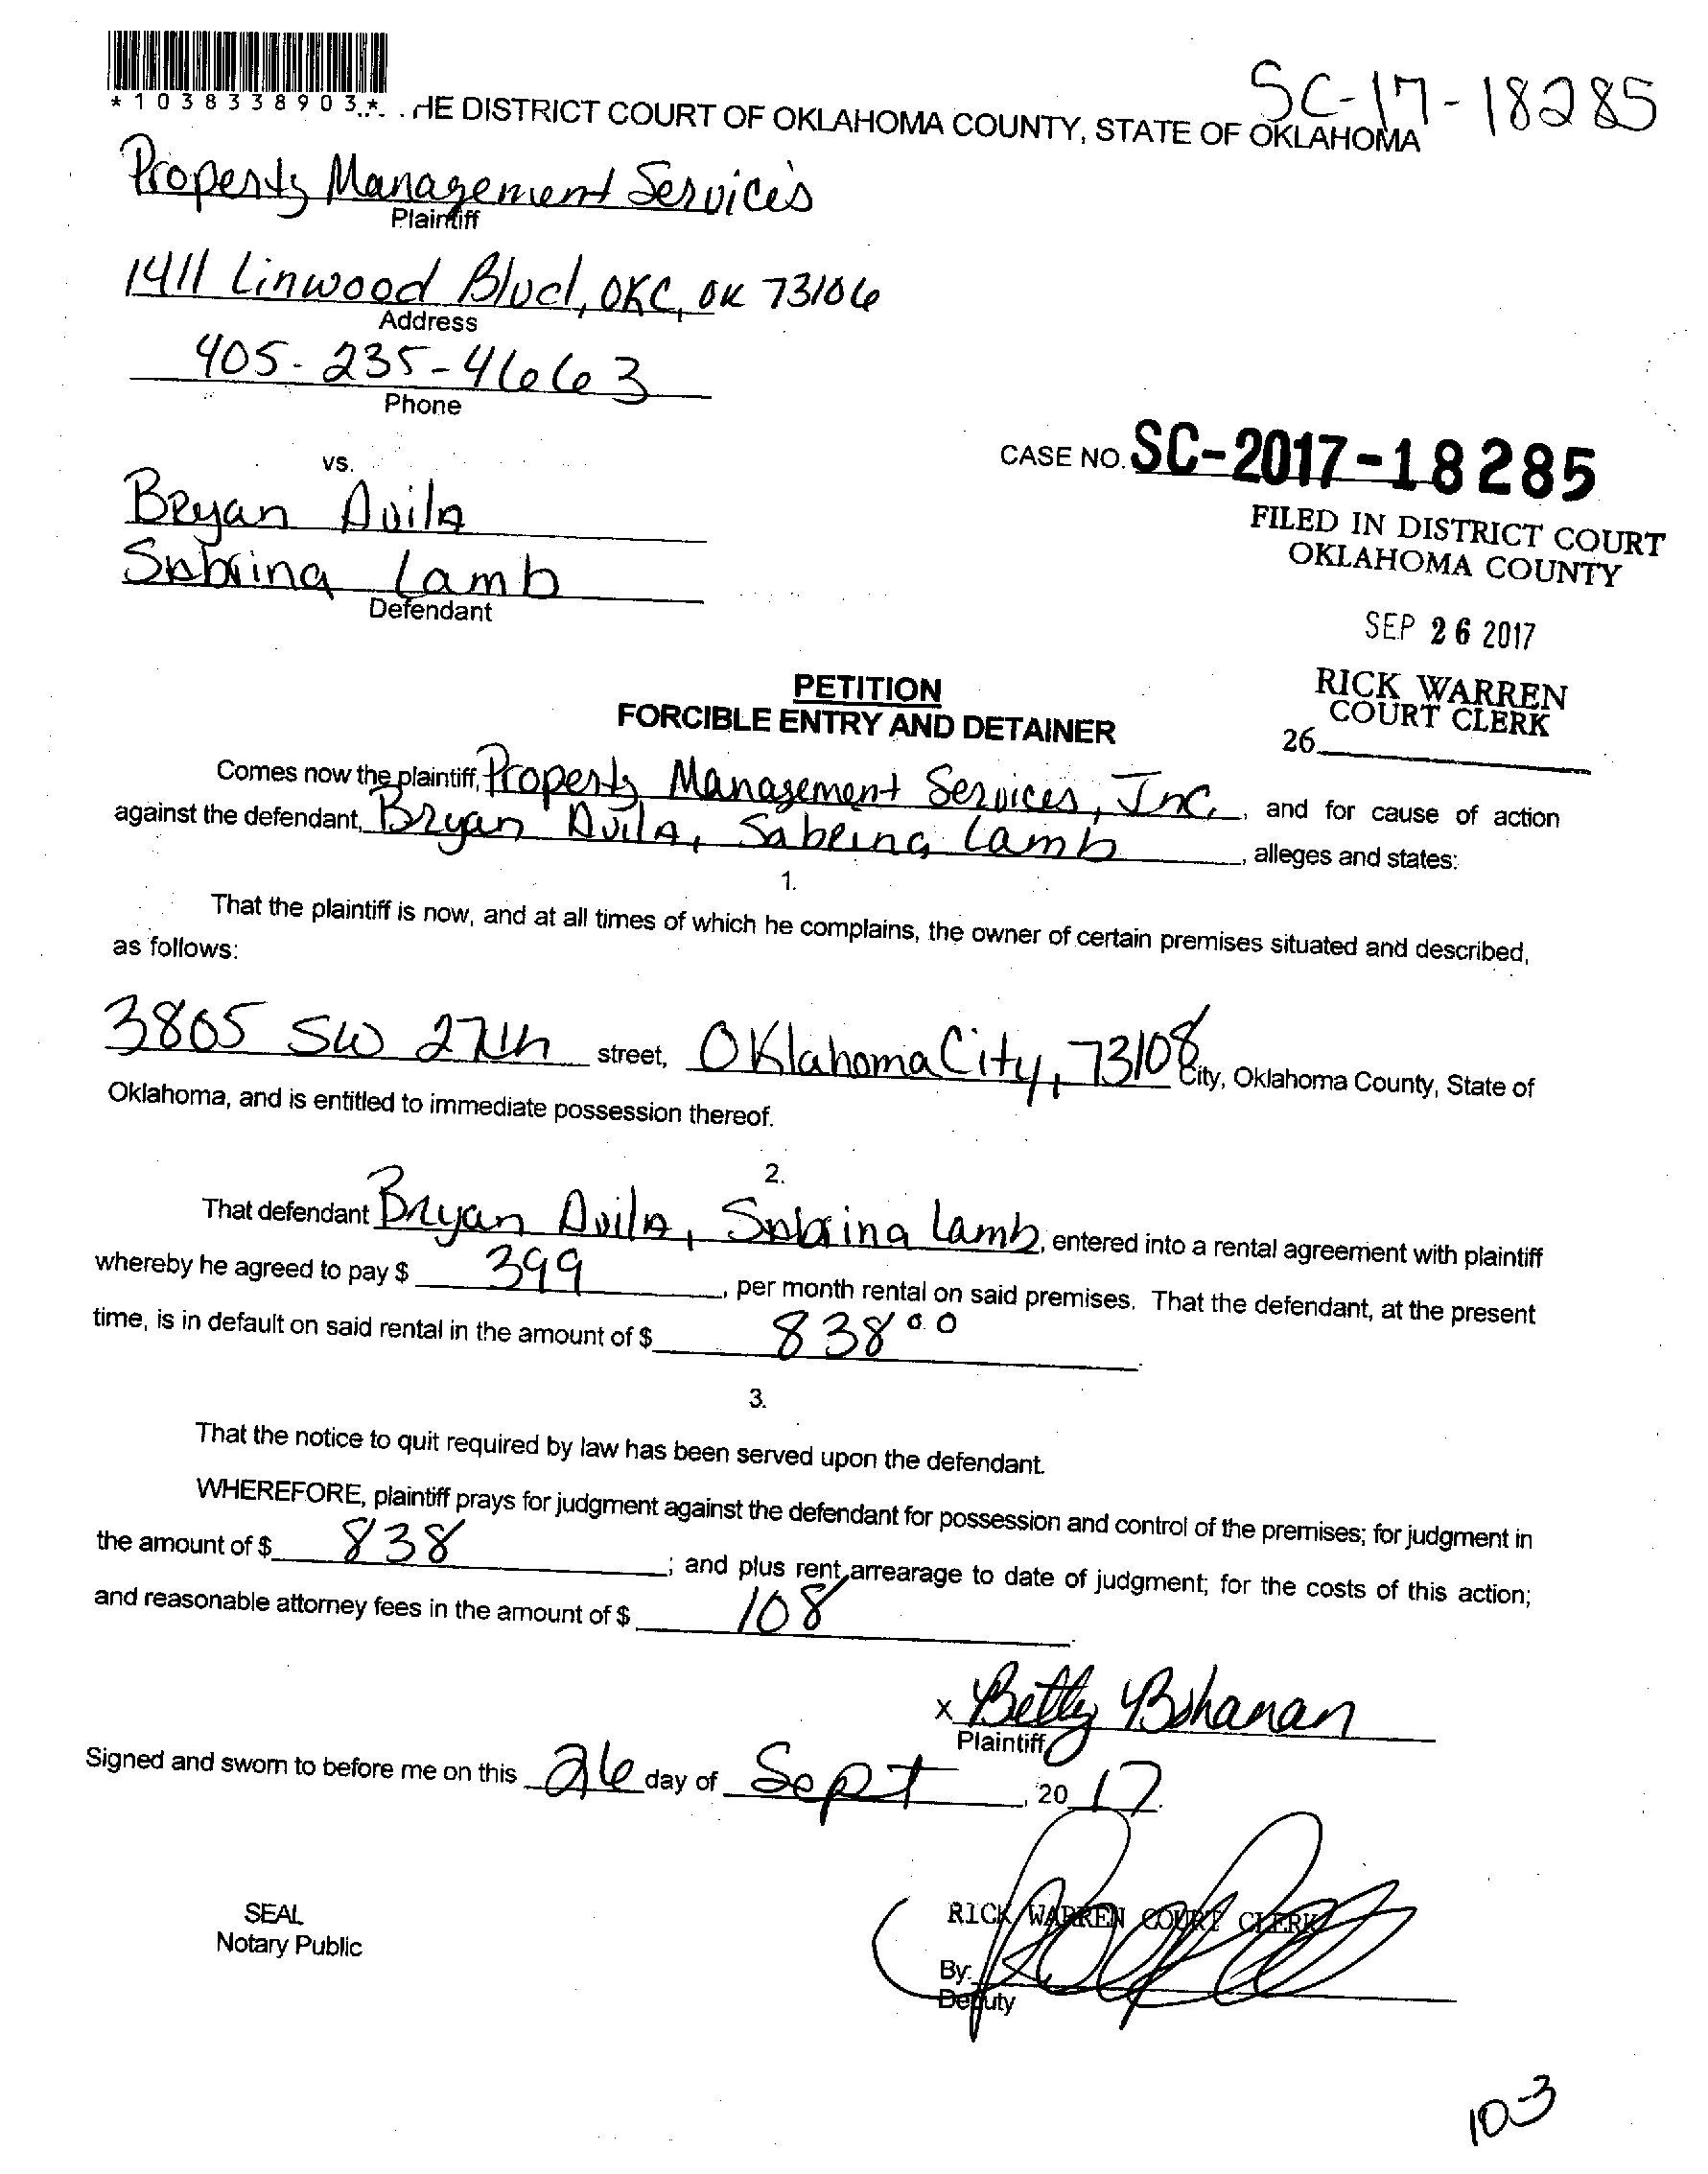 SC-17-18285
*1038338903*
HE DISTRICT COURT OF OKLAHOMA COUNTY, STATE OF OKLAHOMA
Property Management Services
Plaintiff
1411 Linwood Blvd, OKC, OK 73106
Address
405-235-4663
Phone
vs.
CASE NO. SC-2017-18285
Bryan Avila
FILED IN DISTRICT COURT
OKLAHOMA COUNTY
Sabrina Lamb
Defendant
SEP 26 2017
PETITION
RICK WARREN
COURT CLERK
FORCIBLE ENTRY AND DETAINER
26
Comes now the plaintiff, Property Management Services, Inc., and for cause of action
against the defendant, Bryan Avila, Sabrina Lamb, alleges and states:
1.
That the plaintiff is now, and at all times of which he complains, the owner of certain premises situated and described,
as follows:
3805 SW 27th street, Oklahoma City, 73108 City, Oklahoma County, State of
Oklahoma, and is entitled to immediate possession thereof.
2.
That defendant Bryan Avila, Sabrina Lamb, entered into a rental agreement with plaintiff
whereby he agreed to pay $ 399, per month rental on said premises. That the defendant, at the present
time, is in default on said rental in the amount of $ 838 00.
3.
That the notice to quit required by law has been served upon the defendant.
WHEREFORE, plaintiff prays for judgment against the defendant for possession and control of the premises; for judgment in
the amount of $ 838; and plus rent arrearage to date of judgment; for the costs of this action;
and reasonable attorney fees in the amount of $ 108.
x Betty Bohanan
Plaintiff
Signed and sworn to before me on this 26 day of Sept, 2017.
SEAL
Notary Public
RICK WARREN COURT CLERK
By:
Deputy
10-3